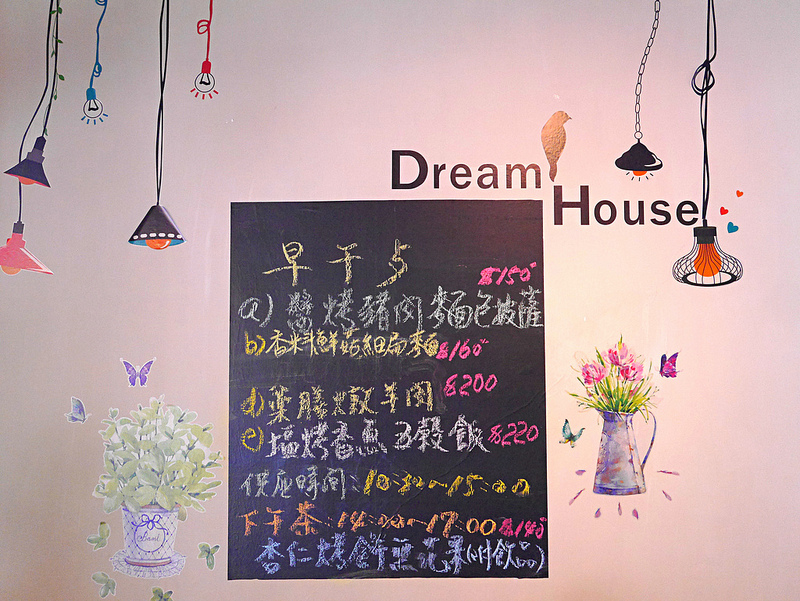 Dream
House
早午
$150
a) 醬烤豬肉麵包披薩
b) 香米 鮮菇細扁麵 $160
d) 藥膳燉羊肉 $200
e) 塩烤香魚五穀飯 $220
供应時間:10:30~15:00
下午茶:14:00~17:00 $140
杏仁烤酥 花果(附飲品)